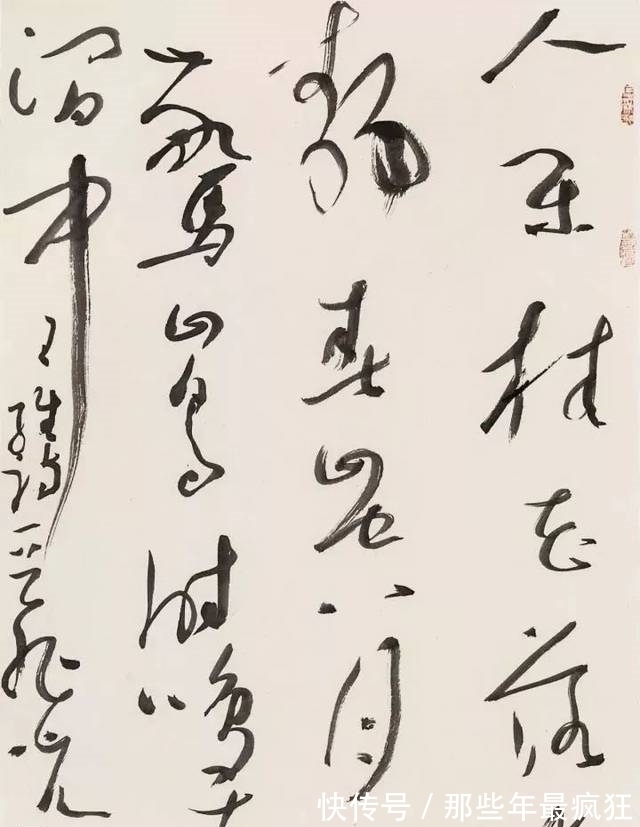 人闲桂花落
静春山空月
惊山鸟时鸣
涧中
王维诗
快传号 / 那些年最疯狂